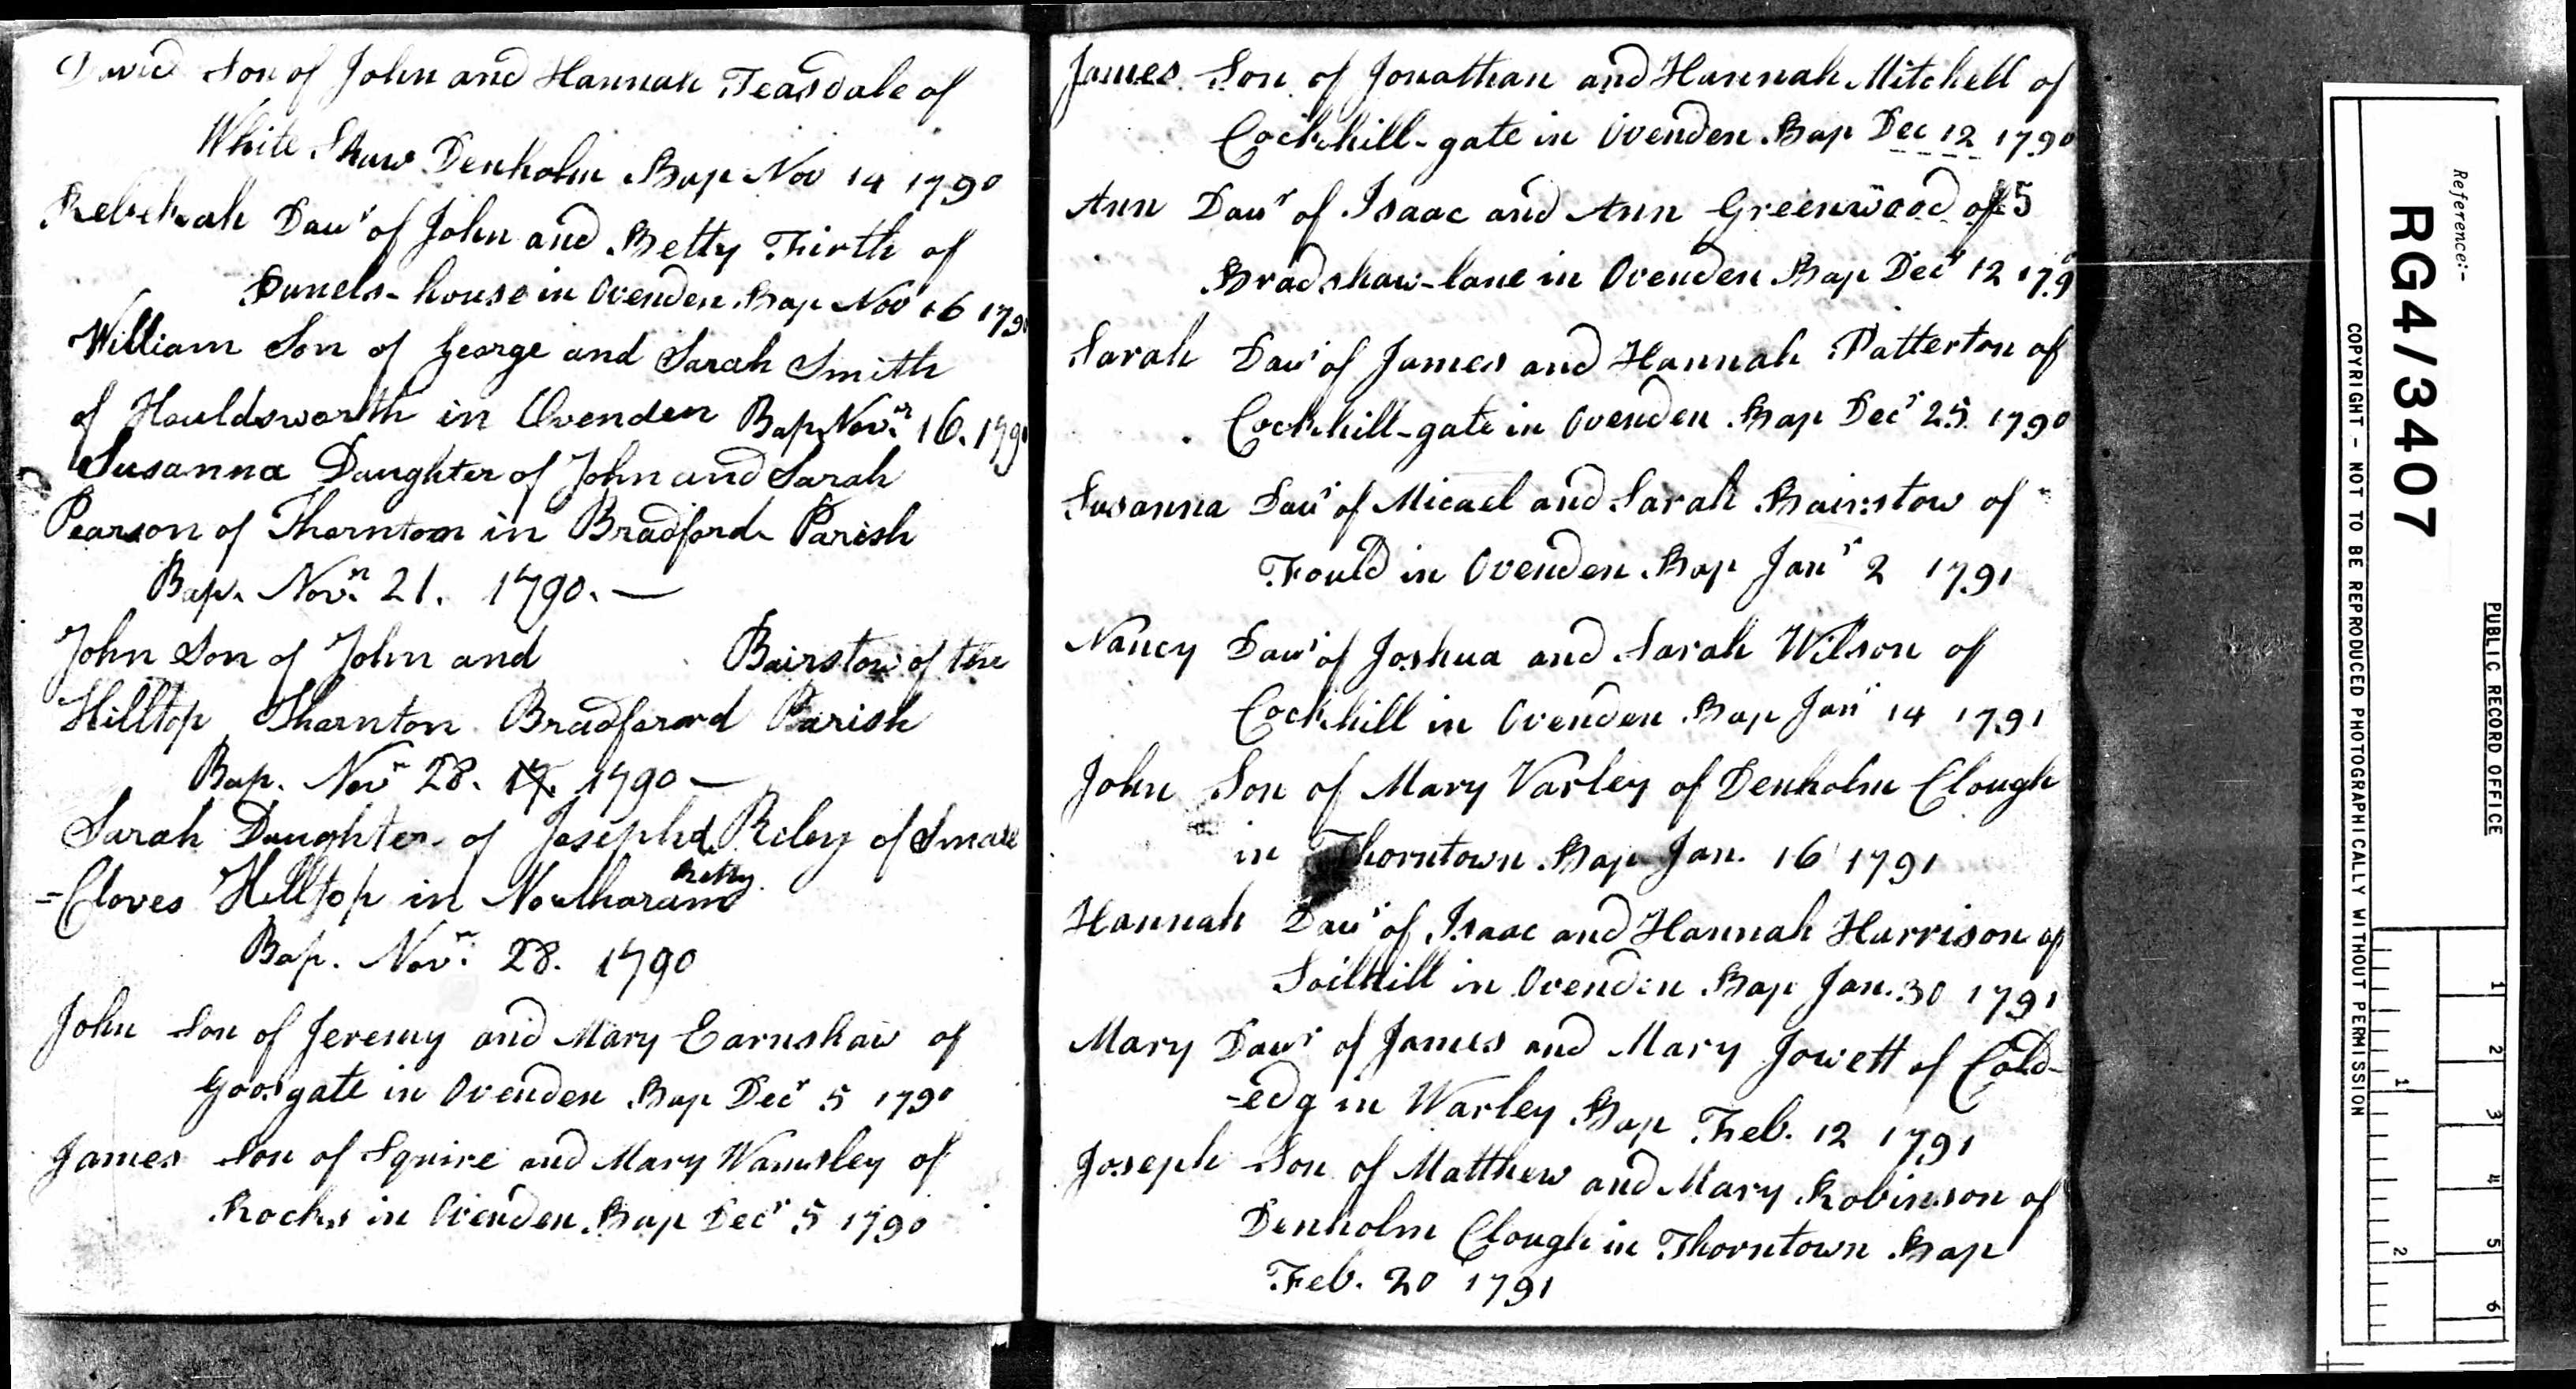 David Son of John and Hannah Teasdale of
White Shaw Denholm Bap Nov 14 1790
Rebekah Daur of John and Betty Firth of
Dunels-house in Ovenden Bap Nov 16 179
William Son of George and Sarah Smith
of Houldsworth in Ovenden Bap. Novr. 16. 1790
Susanna Daughter of John and Sarah
Pearson of Thornton in Bradford Parish
Bap. Novr. 21. 1790. —
John Son of John and Bairstow of the
Hilltop Thornton Bradford Parish
Bap. Novr 28. 17. 1790 —
Sarah Daughter of Joseph & Riley of Smale
Betty
=Cloves Hilltop in Northaram
Bap. Novr. 28. 1790
John Son of Jeremy and Mary Earnshaw of
Goosgate in Ovenden Bap Decr 5 1790
James Son of Squire and Mary Wamsley of
Rocks in Ovenden Bap Decr 5 1790
James Son of Jonathan and Hannah Mitchell of
Cockhill-gate in Ovenden Bap Dec 12 1790
Ann Daur of Isaac and Ann Greenwood of 5
Bradshaw-lane in Ovenden Bap Decr 12 179
Sarah Daur of James and Hannah Patterton of
Cockhill-gate in Ovenden Bap Decr 25 1790
Susanna Daur of Micael and Sarah Bairstow of
Fould in Ovenden Bap Janr 2 1791
Nancy Daur of Joshua and Sarah Wilson of
Cockhill in Ovenden Bap Janr 14 1791
John Son of Mary Varley of Denholm Clough
in Thorntown Bap Jan. 16 1791
Hannah Daur of Isaac and Hannah Harrison of
Soilhill in Ovenden Bap Jan. 30 1791
Mary Daur of James and Mary Jowett of Cold-
-edg in Warley Bap Feb. 12 1791
Joseph Son of Matthew and Mary Robinson of
Denholm Clough in Thorntown Bap
Feb. 20 1791
PUBLIC RECORD OFFICE
Reference:-
RG4/3407
COPYRIGHT - NOT TO BE REPRODUCED PHOTOGRAPHICALLY WITHOUT PERMISSION
1 2 3 4 5 6
1 2